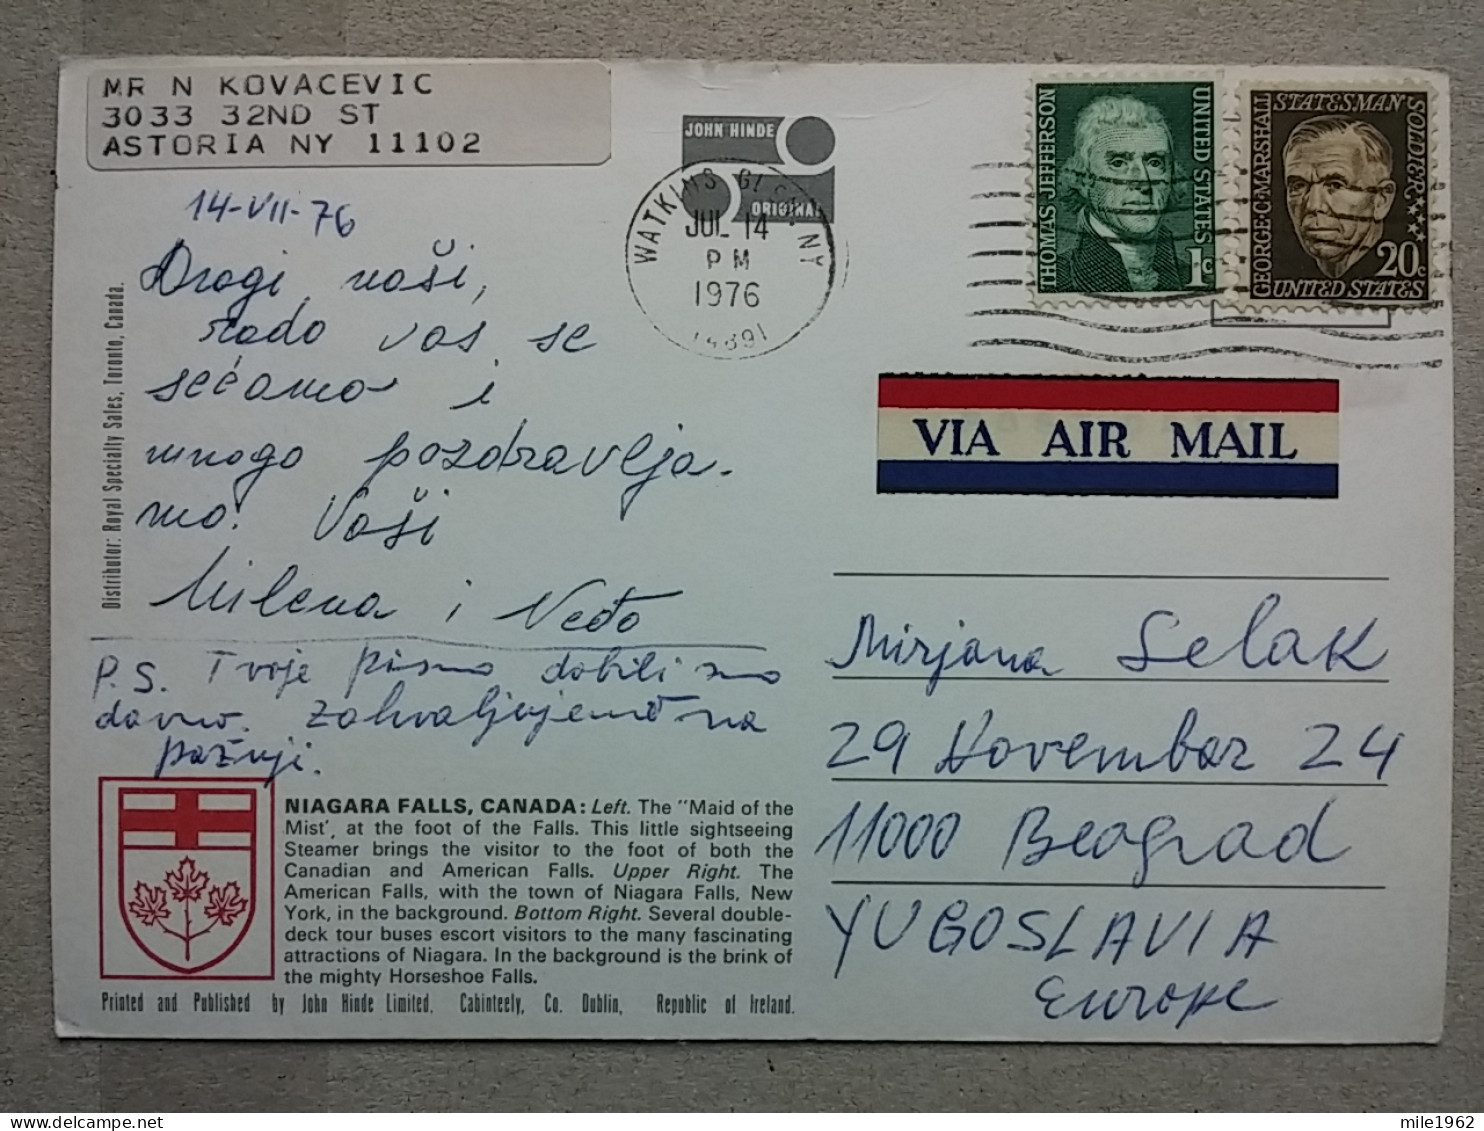 MR N KOVACEVIC
3033 32ND ST
ASTORIA NY 11102
JOHN HINDE
ORIGINAL
WATKINS GLEN NY
JUL 14
PM
1976
14891
THOMAS JEFFERSON
UNITED STATES
1c
GEORGE·C·MARSHALL
STATESMAN
SOLDIER
20c
UNITED STATES
VIA AIR MAIL
14-VII-76
Dragi naši,
rado vas se
sećamo i
mnogo pozdravlja-
mo. Vaši
Milena i Neđo
P.S. Tvoje pismo dobili smo
davno. Zahvaljujemo na
pažnji.
Distributor: Royal Specialty Sales, Toronto, Canada.
Mirjana Selak
29 Novembar 24
11000 Beograd
YUGOSLAVIA
Europe
NIAGARA FALLS, CANADA: Left. The "Maid of the
Mist', at the foot of the Falls. This little sightseeing
Steamer brings the visitor to the foot of both the
Canadian and American Falls. Upper Right. The
American Falls, with the town of Niagara Falls, New
York, in the background. Bottom Right. Several double-
deck tour buses escort visitors to the many fascinating
attractions of Niagara. In the background is the brink of
the mighty Horseshoe Falls.
Printed and Published by John Hinde Limited, Cabinteely, Co. Dublin, Republic of Ireland.
mile1962